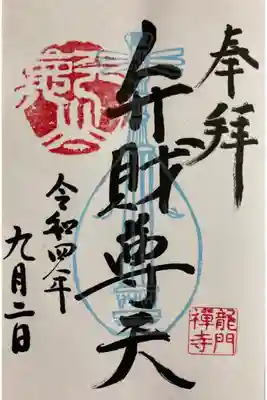 奉拝
弁財尊天
令和四年
九月二日
龍門
禪寺